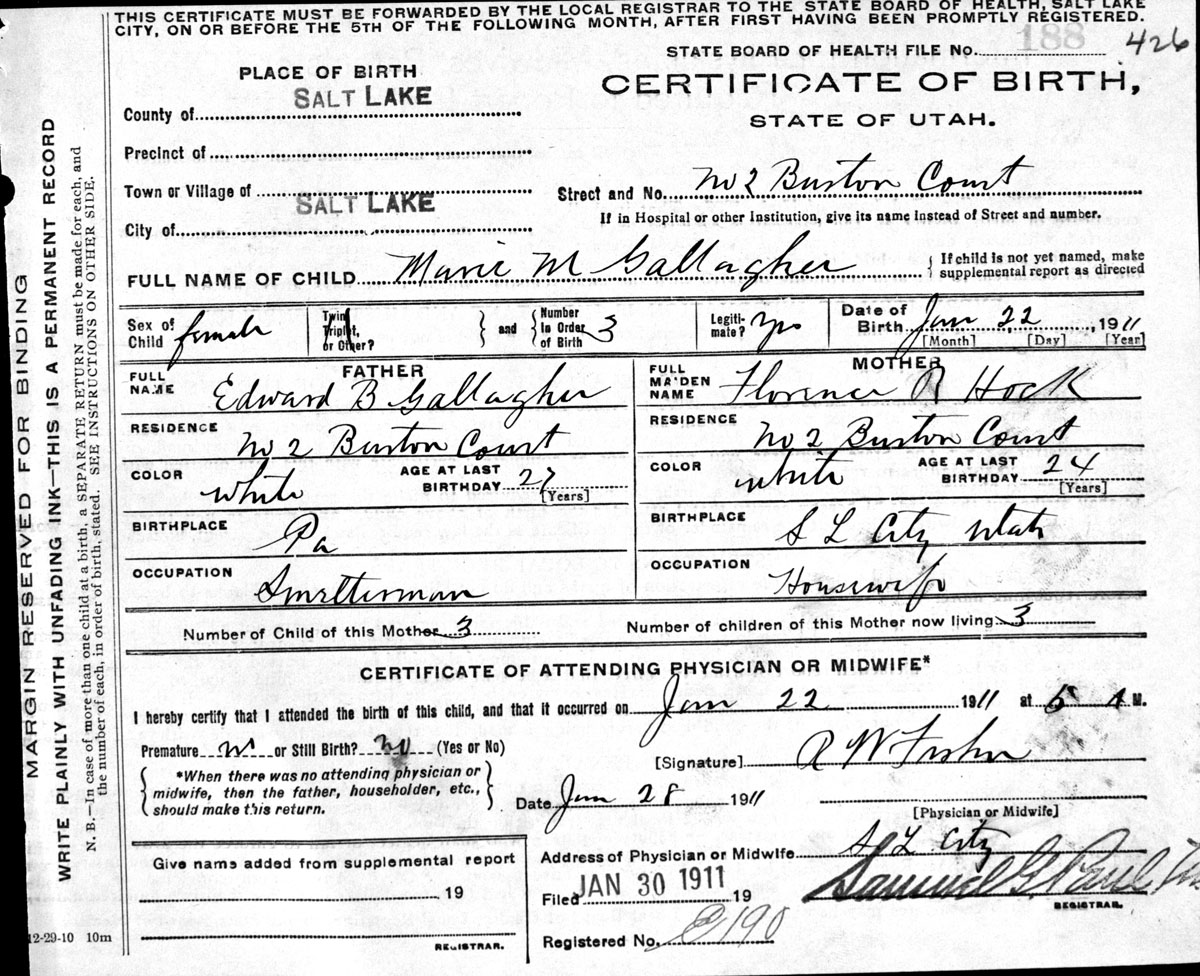 THIS CERTIFICATE MUST BE FORWARDED BY THE LOCAL REGISTRAR TO THE STATE BOARD OF HEALTH, SALT LAKE
CITY, ON OR BEFORE THE 5TH OF THE FOLLOWING MONTH, AFTER FIRST HAVING BEEN PROMPTLY REGISTERED.
STATE BOARD OF HEALTH FILE No. 188 426
PLACE OF BIRTH
CERTIFICATE OF BIRTH,
STATE OF UTAH.
County of SALT LAKE
Precinct of
Town or Village of
Street and No. No 2 Burton Court
If in Hospital or other Institution, give its name instead of Street and number.
City of SALT LAKE
FULL NAME OF CHILD Marie M Gallagher { If child is not yet named, make
supplemental report as directed
Sex of Child female
Twin, Triplet, or Other? } and { Number in Order of Birth 3
Legitimate? Yes
Date of Birth Jan 22, 1911
[Month] [Day] [Year]
FATHER
MOTHER
FULL NAME Edward B Gallagher
FULL MAIDEN NAME Florence R Hock
RESIDENCE No 2 Burton Court
RESIDENCE No 2 Burton Court
COLOR White AGE AT LAST BIRTHDAY 27 [Years]
COLOR white AGE AT LAST BIRTHDAY 24 [Years]
BIRTHPLACE Pa
BIRTHPLACE S L City Utah
OCCUPATION Smelterman
OCCUPATION Housewife
Number of Child of this Mother 3
Number of children of this Mother now living 3
CERTIFICATE OF ATTENDING PHYSICIAN OR MIDWIFE*
I hereby certify that I attended the birth of this child, and that it occurred on Jan 22 1911 at 5 A M.
Premature no or Still Birth? no (Yes or No)
[Signature] R W Fisher
{ *When there was no attending physician or
midwife, then the father, householder, etc.,
should make this return. }
Date Jan 28 1911
[Physician or Midwife]
Address of Physician or Midwife S L City
Give name added from supplemental report
19
REGISTRAR.
Filed JAN 30 1911 19
Samuel G Paul
REGISTRAR.
Registered No. E190
12-29-10 10m
MARGIN RESERVED FOR BINDING
WRITE PLAINLY WITH UNFADING INK—THIS IS A PERMANENT RECORD
N. B.—In case of more than one child at a birth, a SEPARATE RETURN must be made for each, and
the number of each, in order of birth, stated. SEE INSTRUCTIONS ON OTHER SIDE.